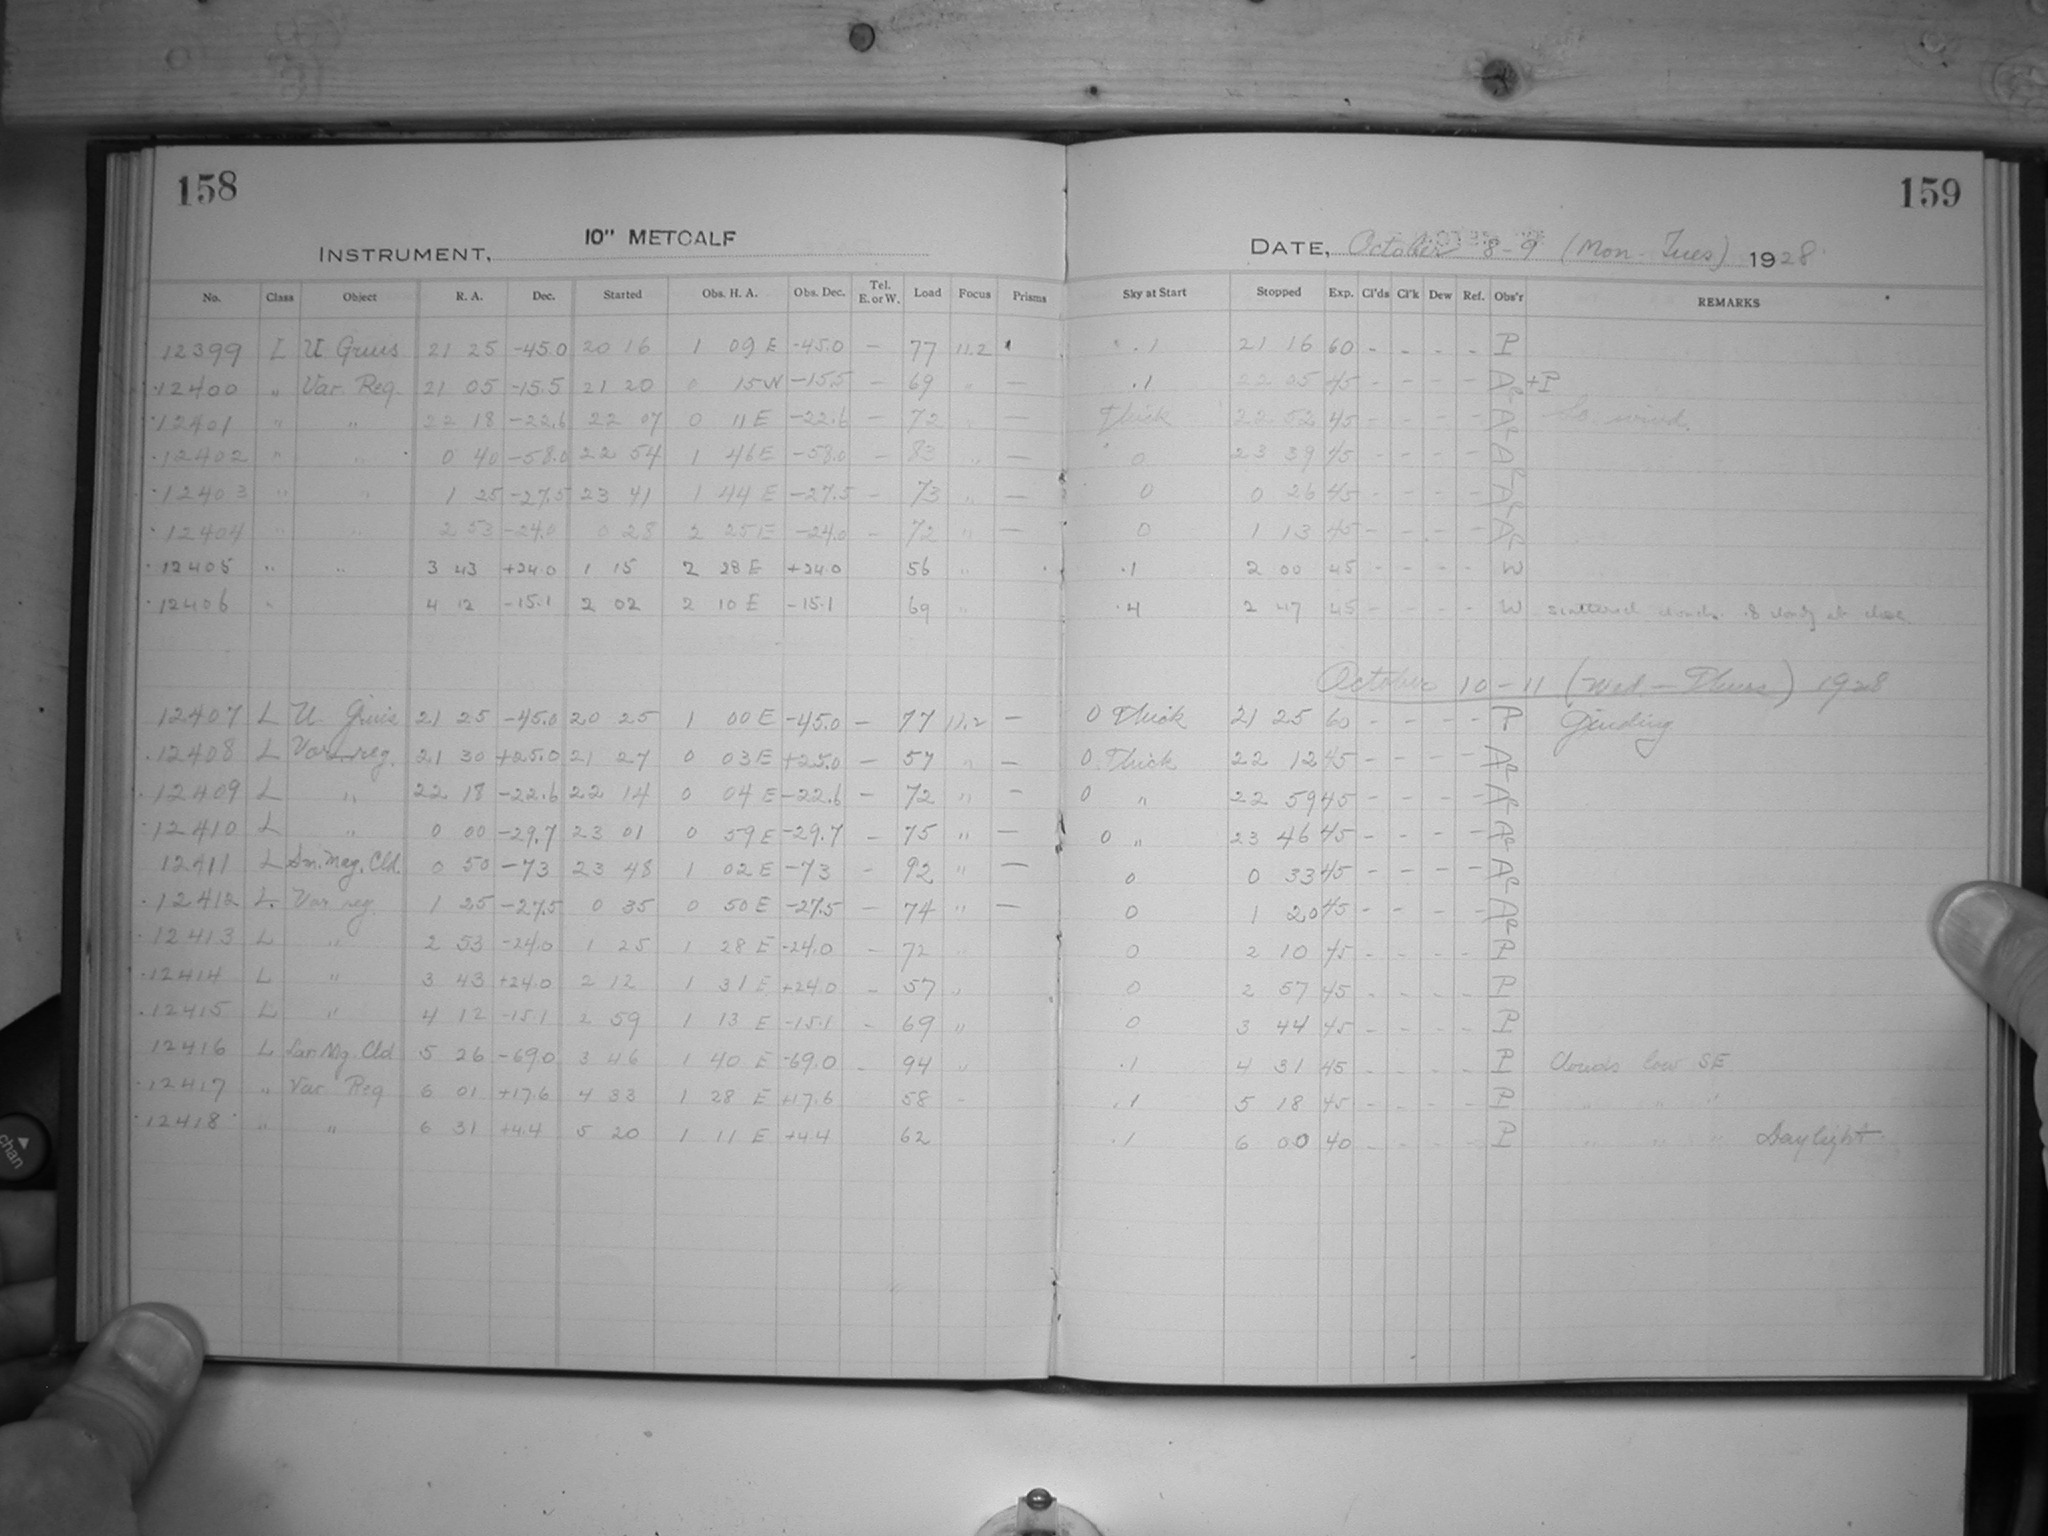 158
159
INSTRUMENT, 10" METCALF
DATE, October 8-9 (Mon-Tues) 1928
No. Class Object R. A. Dec. Started Obs. H. A. Obs. Dec. Tel. E. or W. Load Focus Prisms Sky at Start Stopped Exp. Cl'ds Cl'k Dew Ref. Obs'r REMARKS
12399 L U Gruis 21 25 -45.0 20 16 1 09 E -45.0 - 77 11.2 .1 21 16 60 - - - - P
12400 " Var. Reg. 21 05 -15.5 21 20 0 15 W -15.5 - 69 " - .1 22 05 45 - - - - +P
12401 " " 22 18 -22.6 22 07 0 11 E -22.6 - 72 " - Thick 22 52 45 - - - - So. wind.
12402 " " 0 40 -58.0 22 54 1 46 E -58.0 - 83 " - 0 23 39 45 - - - -
12403 " " 1 25 -27.5 23 41 1 44 E -27.5 - 73 " - 0 0 26 45 - - - -
12404 " " 2 53 -24.0 0 28 2 25 E -24.0 - 72 " - 0 1 13 45 - - - -
12405 " " 3 43 +24.0 1 15 2 28 E +24.0 56 " .1 2 00 45 - - - - W
12406 " 4 12 -15.1 2 02 2 10 E -15.1 69 " .4 2 47 45 - - - - W scattered clouds. .8 cloudy at close
October 10-11 (Wed-Thurs) 1928
12407 L U. Gruis 21 25 -45.0 20 25 1 00 E -45.0 - 77 11.2 - 0 Thick 21 25 60 - - - - P
12408 L Var. reg. 21 30 +25.0 21 27 0 03 E +25.0 - 57 " - 0 Thick 22 12 45 - - - -
12409 L " 22 18 -22.6 22 14 0 04 E -22.6 - 72 " - 0 " 22 59 45 - - - -
12410 L " 0 00 -29.7 23 01 0 59 E -29.7 - 75 " - 0 " 23 46 45 - - - -
12411 L Sm. Mag. Cld. 0 50 -73 23 48 1 02 E -73 - 92 " - 0 0 33 45 - - - -
12412 L. Var reg 1 25 -27.5 0 35 0 50 E -27.5 - 74 " - 0 1 20 45 - - - -
12413 L " 2 53 -24.0 1 25 1 28 E -24.0 - 72 " 0 2 10 45 - - - - P
12414 L " 3 43 +24.0 2 12 1 31 E +24.0 - 57 " 0 2 57 45 - - - - P
12415 L " 4 12 -15.1 2 59 1 13 E -15.1 - 69 " 0 3 44 45 - - - - P
12416 L Lar. Mg. Cld 5 26 -69.0 3 46 1 40 E -69.0 - 94 " .1 4 31 45 - - - - P Clouds low SE
12417 " Var Reg 6 01 +17.6 4 33 1 28 E +17.6 58 " .1 5 18 45 - - - - P " " "
12418 " " 6 31 +4.4 5 20 1 11 E +4.4 62 .1 6 00 40 - - - - P " " " Daylight
chan